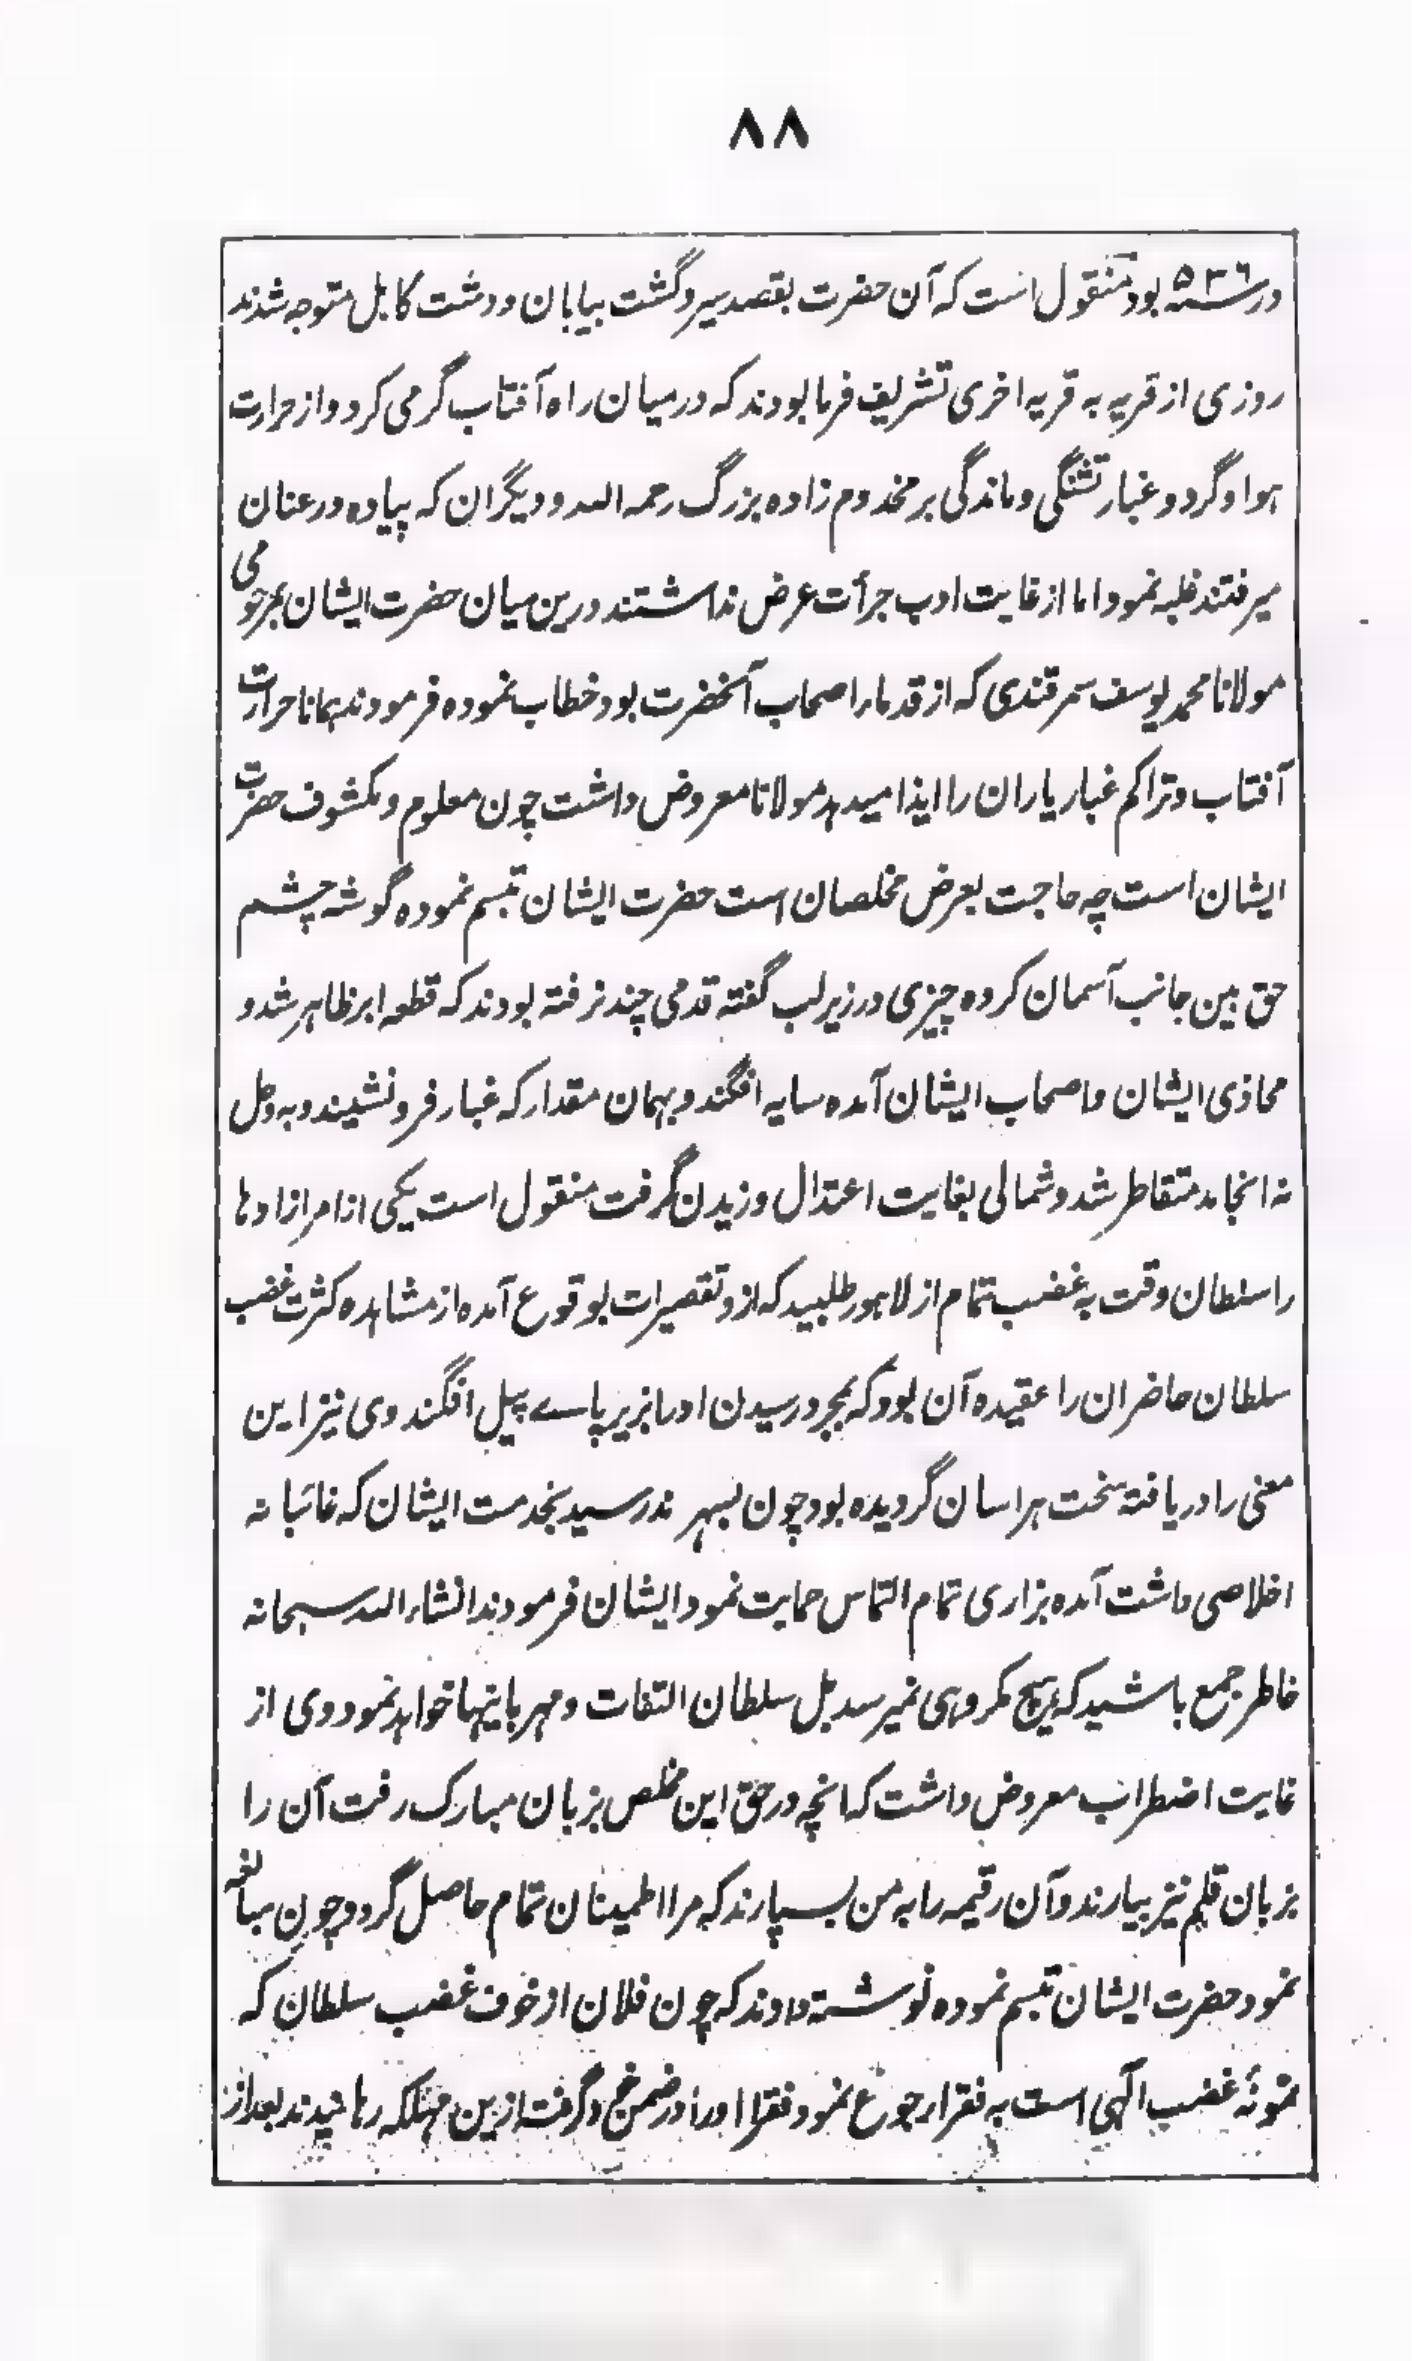 ۸۸
در سنه ۵۳۶ بود منقول است که آن حضرت بقصد سیر و گشت بیابان و دشت کابل متوجه شدند
روزی از قریه به قریه اخری تشریف فرما بودند که در میان راه آفتاب گرمی کرد و از حرارت
هوا و گرد و غبار تشنگی و ماندگی بر مخدوم زاده بزرگ رحمه الله و دیگران که پیاده در عنان
میرفتند غلبه نمود اما از غایت ادب جرأت عرض نداشتند درین میان حضرت ایشان بمرحومی
مولانا محمد یوسف سمرقندی که از قدماء اصحاب آنحضرت بود خطاب نموده فرمودند همانا حرارت
آفتاب و تراکم غبار یاران را ایذا میدهد مولانا معروض داشت چون معلوم و مکشوف حضرت
ایشان است چه حاجت بعرض مخلصان است حضرت ایشان تبسم نموده گوشه چشم
حق بین جانب آسمان کرده چیزی در زیر لب گفته قدمی چند نرفته بودند که قطعه ابر ظاهر شد و
محاذی ایشان و اصحاب ایشان آمده سایه افگند و بهمان مقدار که غبار فرو نشیند و به وحل
نه انجامد متقاطر شد و شمالی بغایت اعتدال وزیدن گرفت منقول است یکی از امرازادها
را سلطان وقت به غضب تمام از لاهور طلبید که ازو تقصیرات بوقوع آمده از مشاهده کثرت غضب
سلطان حاضران را عقیده آن بود که بمجرد رسیدن او را بزیر پاے پیل افگند وی نیز این
معنی را دریافته سخت هراسان گردیده بود چون بسهرند رسید بخدمت ایشان که غائبانه
اخلاصی داشت آمده بزاری تمام التماس حمایت نمود ایشان فرمودند انشاء الله سبحانه
خاطر جمع باشید که هیچ مکروهی نمیرسد بل سلطان التفات و مهربانیها خواهد نمود وی از
غایت اضطراب معروض داشت که انچه در حق این مخلص بزبان مبارک رفت آن را
بزبان قلم نیز بیارند و آن رقیمه را به من بسپارند که مرا اطمینان تمام حاصل گردد چون مبالغه
نمود حضرت ایشان تبسم نموده نوشته دادند که چون فلان از خوف غضب سلطان که
نمونۀ غضب الٓهی است به فقرا رجوع نمود فقرا او را در ضمن خود گرفته ازین مهلکه رهانیدند بعد از